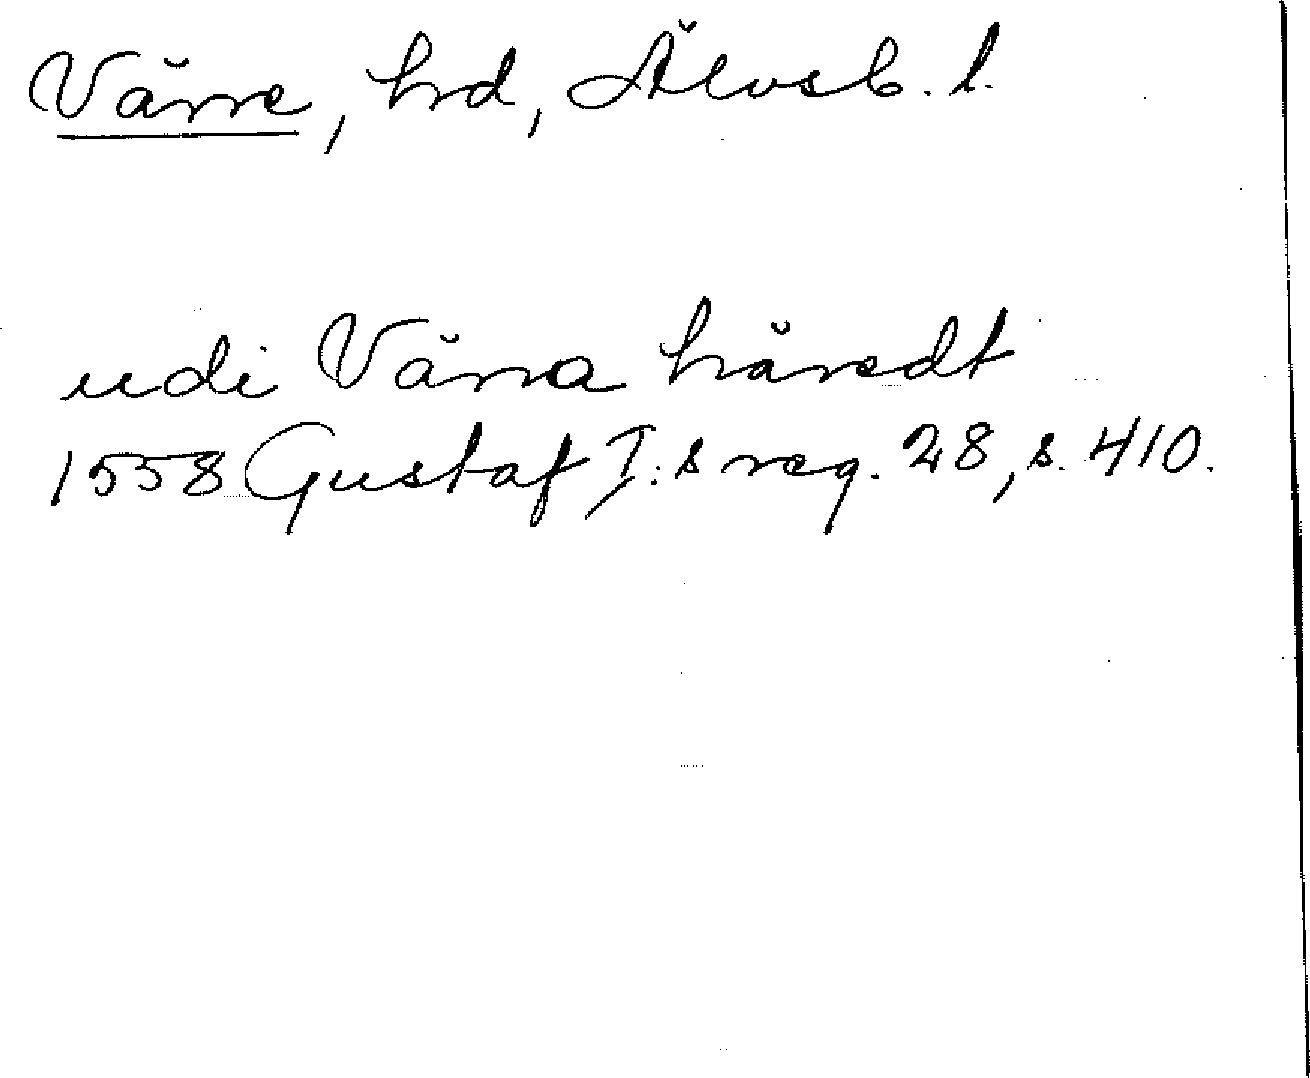 Väne, hrd, Älvsb. l.
udi Väna häredt
1558 Gustaf I:s reg. 28, s. 410.